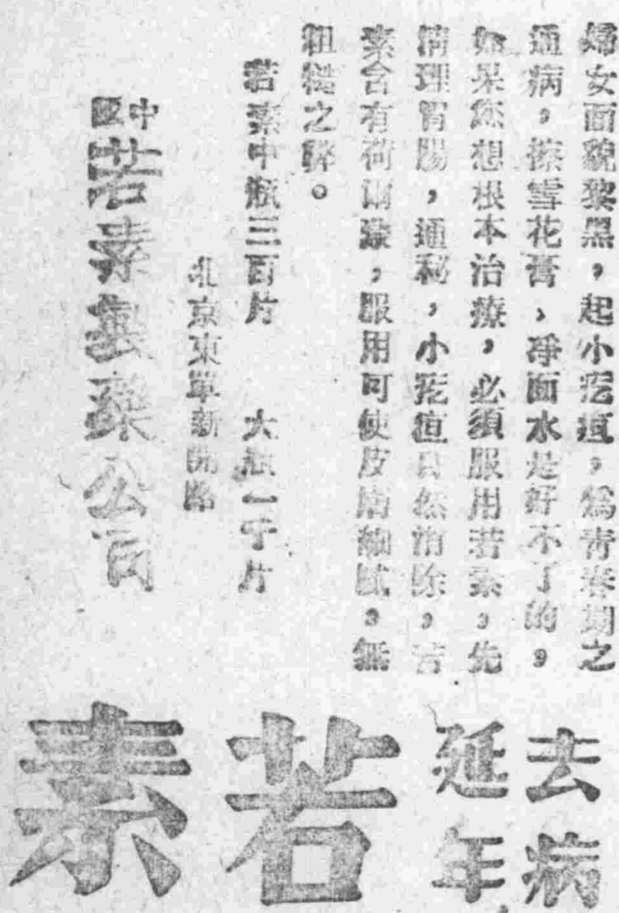 婦女面貌黎黑，起小疙疸，為青春期之
通病，擦雪花膏、淨面水是好不了的，
如果您想根本治療，必須服用若素，先
清理胃腸，通利，小疙疸自然消除，若
素含有荷爾蒙，服用可使皮膚細膩，無
粗糙之弊。
若素中瓶三百片　大瓶一千片
北京東單新開路
中國若素製藥公司
去病
延年
若素